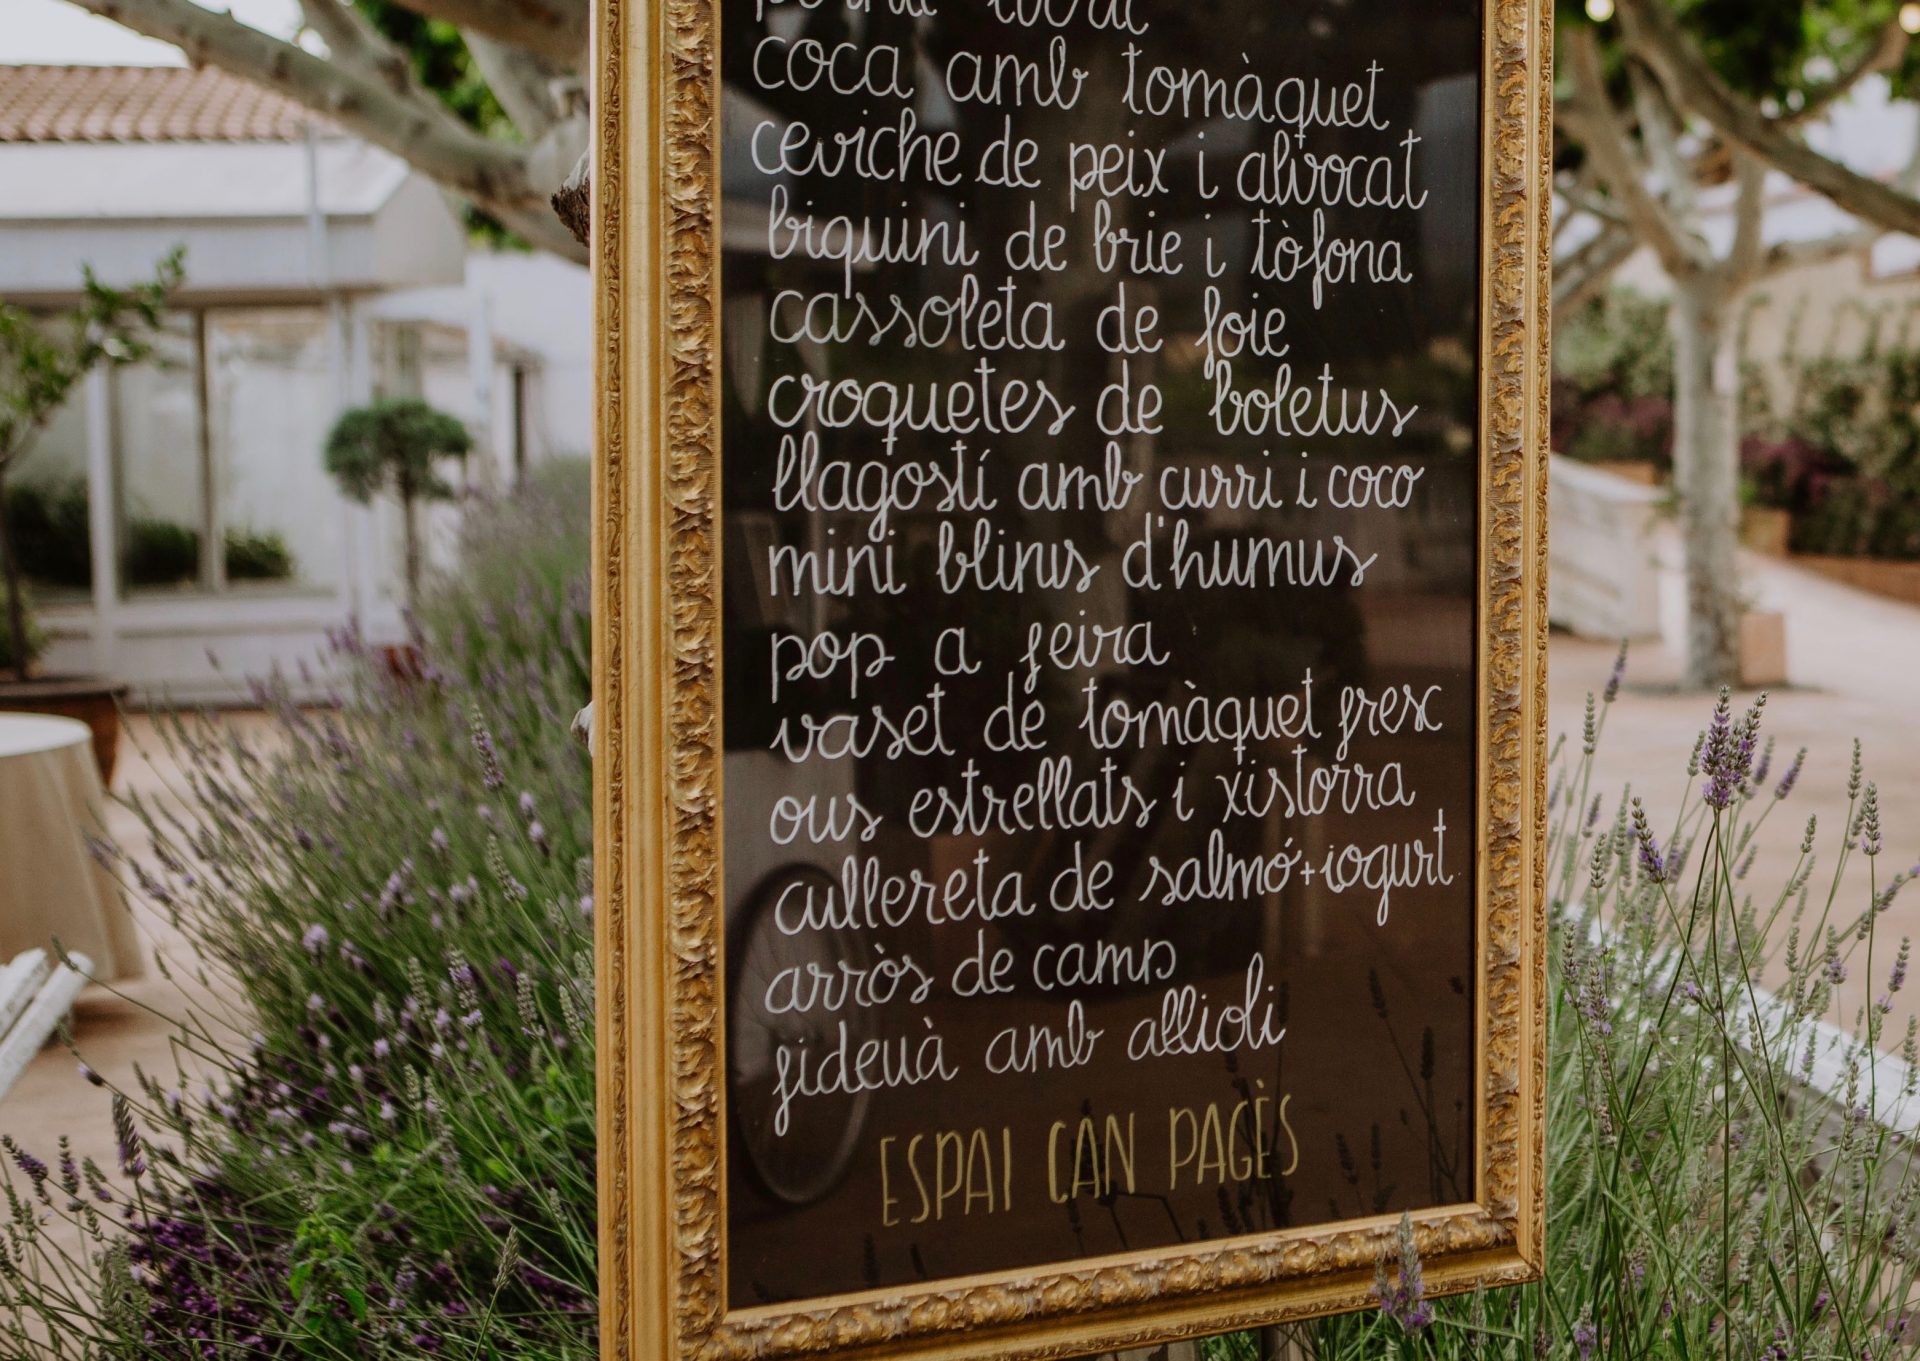 coca amb tomàquet
ceviche de peix i alvocat
biquini de brie i tòfona
cassoleta de foie
croquetes de boletus
llagostí amb curri i coco
mini blinis d'humus
pop a feira
vaset de tomàquet fresc
ous estrellats i xistorra
cullereta de salmó+iogurt
arròs de camp
fideuà amb allioli
ESPAI CAN PAGÈS